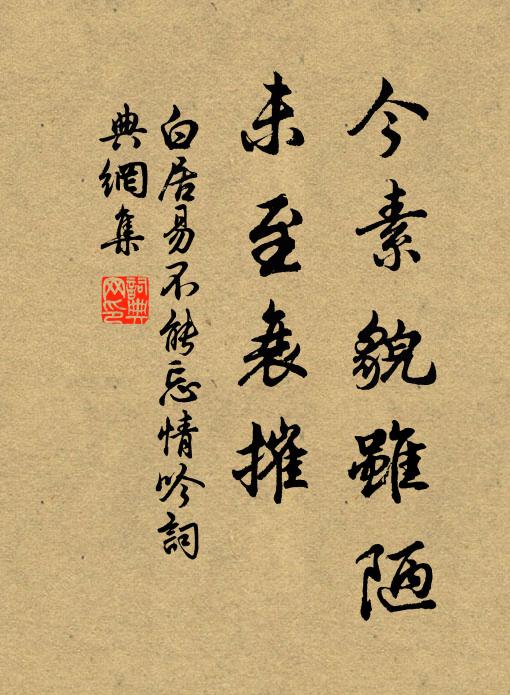 今素貌雖陋
未至衰摧
白居易不能忘情吟詞
典網集
詞典網印